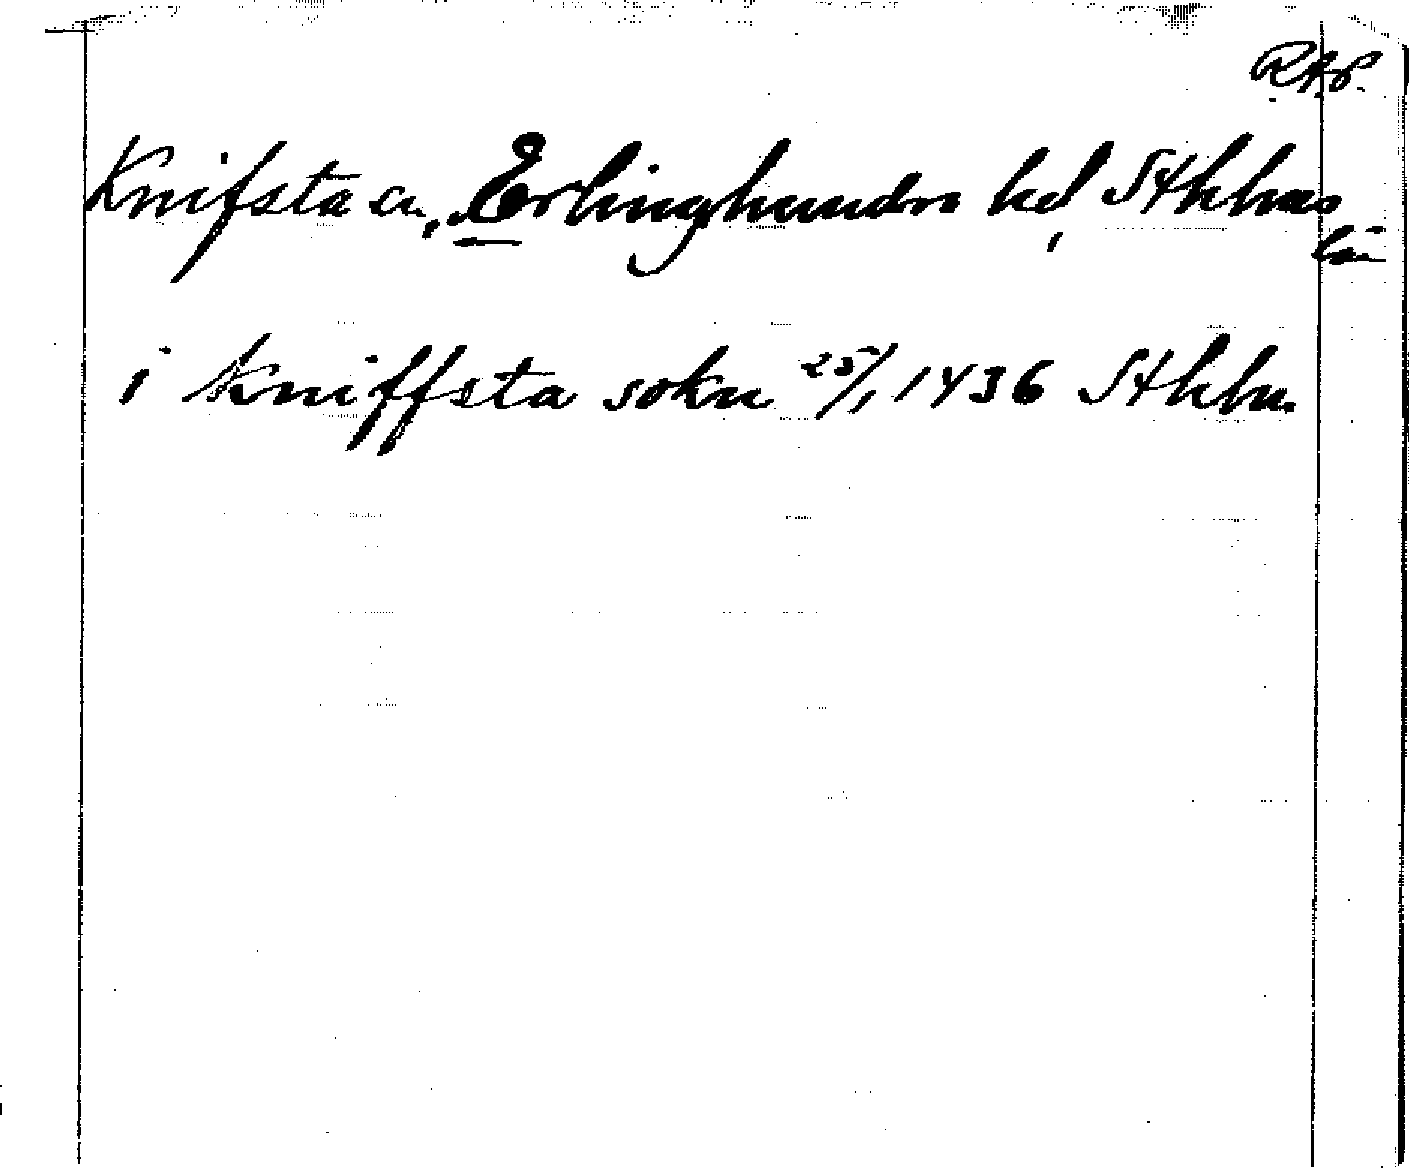 R.A.P.
Knifsta sn, Erlinghundra hd, Sthlms
län
i kniffsta sokn 25/1 1436 Sthlm.